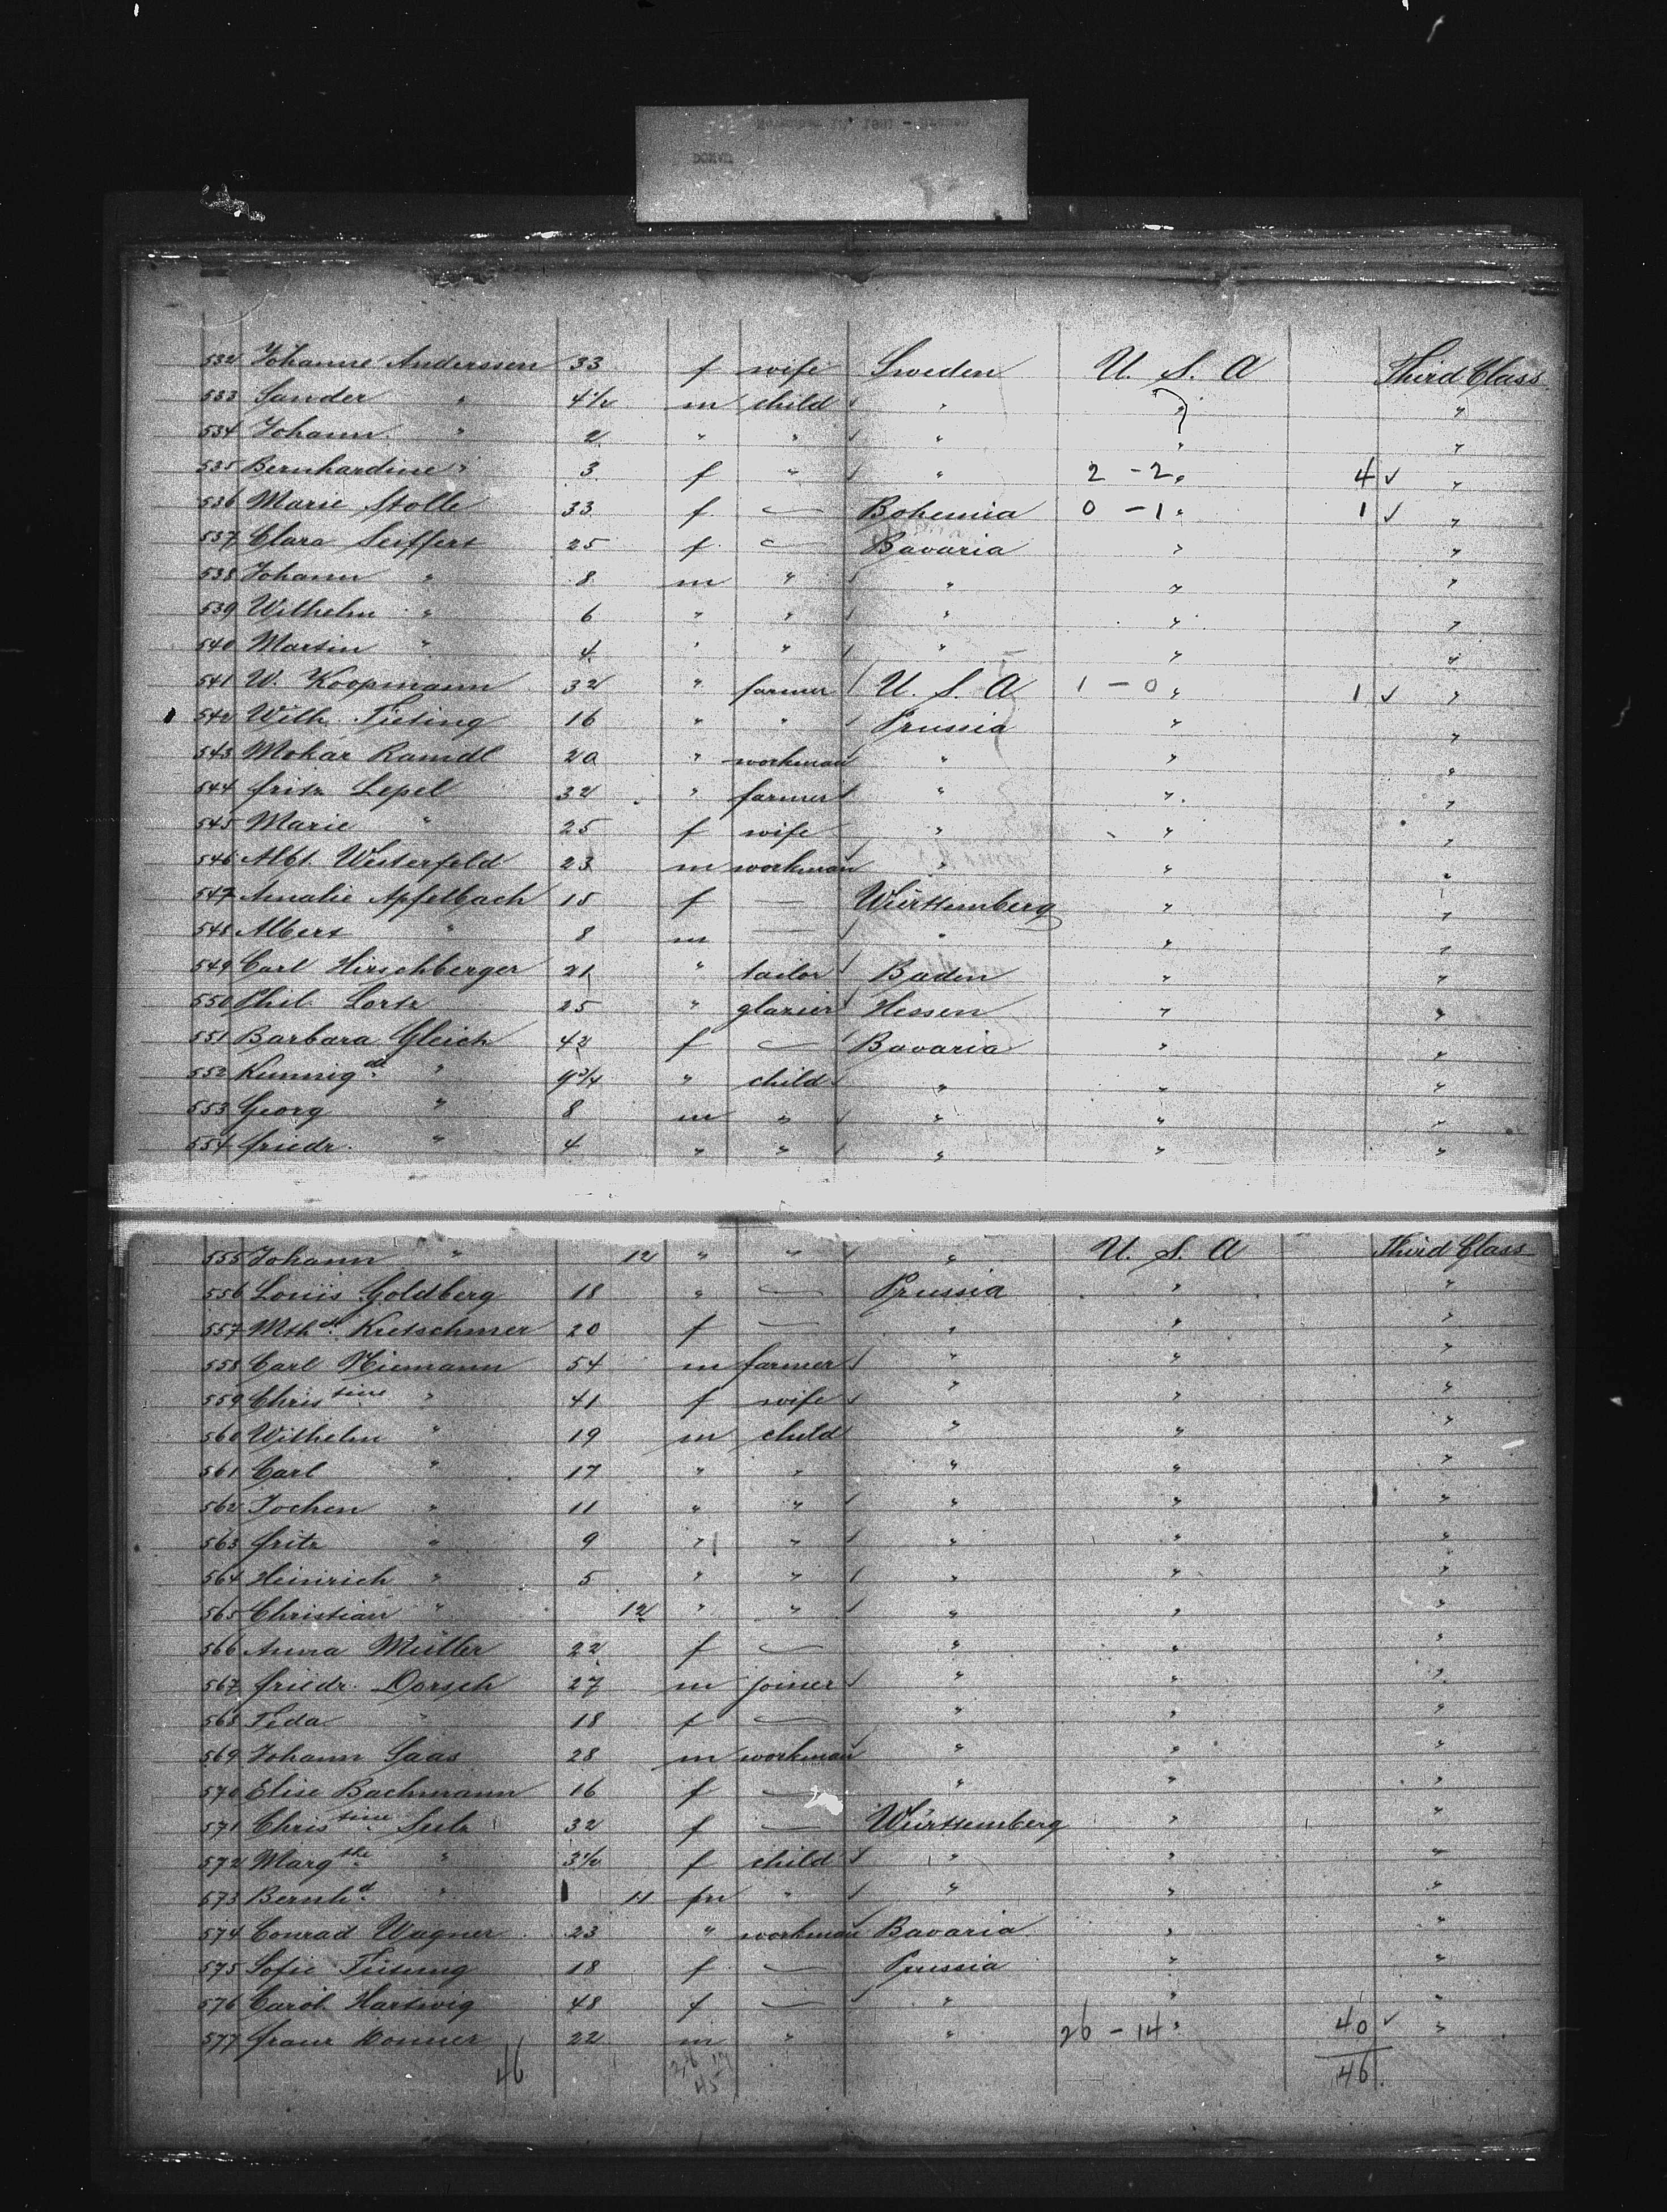 532 Johanne Anderssen 33 f wife Sweden U. S. A Third Class
533 Sander " 4 1/2 m child " " "
534 Johann " 2 " " " " "
535 Bernhardine " 3 f " " 2 - 2 " 4 ✓ "
536 Marie Stolle 33 f — Bohemia 0 - 1 " 1 ✓ "
537 Clara Seiffert 25 f — Bavaria " "
538 Johann " 8 m " " " "
539 Wilhelm " 6 " " " " "
540 Martin " 4 " " " " "
541 W. Koopmann 32 " farmer U. S. A 1 - 0 " 1 ✓ "
542 Wilh. Tieting 16 " " Prussia " "
543 Mokar Ramdl 20 " workman " " "
544 Fritz Lepel 32 " farmer " " "
545 Marie " 25 f wife " " "
546 Albt. Westerfeld 23 m workman " " "
547 Amalie Apfelbach 15 f — Württemberg " "
548 Albert " 8 m — " " "
549 Carl Hirschberger 21 " tailor Baden " "
550 Phil. Lortz 25 " glazier Hessen " "
551 Barbara Gleich 42 f — Bavaria " "
552 Kunnigde " 9 3/4 " child " " "
553 Georg " 8 m " " " "
554 Friedr. " 4 " " " " "
555 Johann " 12 " " " U. S. A Third Class
556 Louis Goldberg 18 " — Prussia " "
557 Mthde Kretschmer 20 f — " " "
558 Carl Niemann 54 m farmer " " "
559 Christine " 41 f wife " " "
560 Wilhelm " 19 m child " " "
561 Carl " 17 " " " " "
562 Jochen " 11 " " " " "
563 Fritz " 9 " " " " "
564 Heinrich " 5 " " " " "
565 Christian " 12 " " " " "
566 Anna Müller 22 f — " " "
567 Friedr. Dorsch 27 m joiner " " "
568 Teda " 18 f — " " "
569 Johann Saas 28 m workman " " "
570 Elise Bachmann 16 f — " " "
571 Christine Seelz 32 f — Württemberg " "
572 Margthe " 3 1/2 f child " " "
573 Bernhd " 11 m " " " "
574 Conrad Wagner 23 " workman Bavaria " "
575 Sofie Tietung 18 f — Prussia " "
576 Carol. Hartwig 48 f — " " "
577 Franz Donner 22 m " " 26 - 14 " 40 ✓ "
46 46